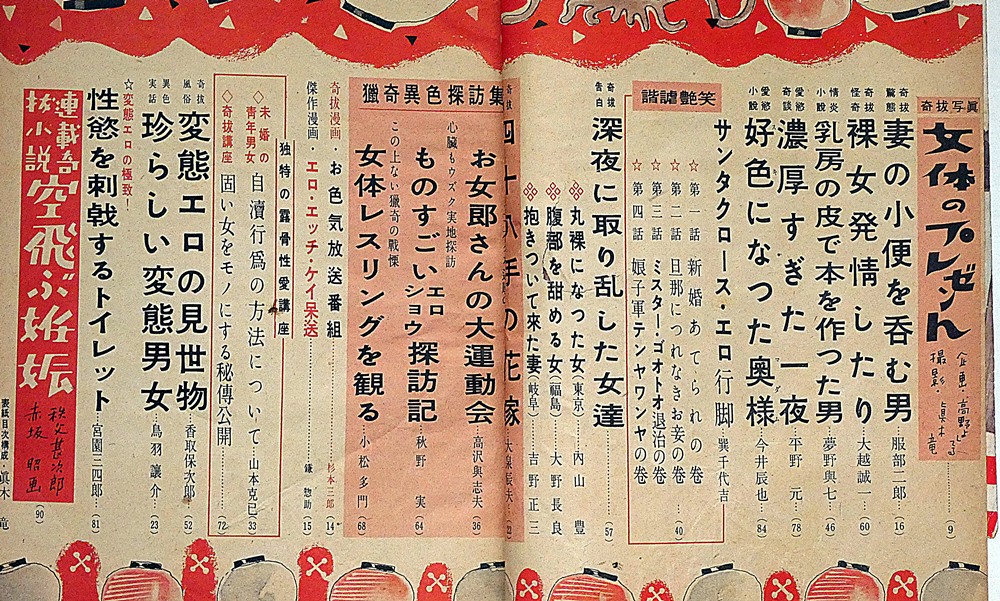 奇抜写真
女体のプレゼント
企画・高野よ
撮影・眞木竜
(9)
奇抜驚態
妻の小便を呑む男
服部二郎 (16)
奇抜怪奇
裸女発情したり
大越誠一 (60)
情炎小說
乳房の皮で本を作つた男
夢野與七 (46)
愛慾奇談
濃厚すぎた一夜
平野元 (78)
愛慾小說
好色になつた奥様
今井辰也 (84)
諧謔艶笑
サンタクロース・エロ行脚
巽千代吉
☆第一話 新婚あてられの巻
☆第二話 旦那につれなきお妾の巻
☆第三話 ミスター・ゴオトオ退治の巻
☆第四話 娘子軍テンヤワンヤの巻
(40)
奇抜告白
深夜に取り乱した女達
(57)
丸裸になつた女(東京) 內山豊
腹部を甜める女(福島) 大野長良
抱きついて来た妻(岐阜) 吉野正三
奇抜
四十八手の花嫁
(22)
獵奇異色探訪集
お女郎さんの大運動会
高沢與志夫 (36)
心臓もウズク実地探訪
ものすごいエロショウ探訪記
秋野実 (64)
この上ない獵奇の戰慄
女体レスリングを観る
小松多門 (68)
奇抜漫画・お色気放送番組
杉本二郎 (14)
傑作漫画・エロ・エッチ・ケイ呆送
鎌惣助 (15)
独特の露骨性愛講座
◇未婚の青年男女
自瀆行爲の方法について
山本克已 (33)
◇奇抜講座
固い女をモノにする秘傳公開
(72)
奇抜風俗
変態エロの見世物
香取保次郎 (52)
異色実話
珍らしい変態男女
鳥羽讓介 (23)
☆変態エロの極致!
性慾を刺戟するトイレット
宮園三四郎 (81)
連載奇抜小説
空飛ぶ妊娠
秩父甚次郎
赤坂昭画
(90)
表紙目次構成・眞木竜